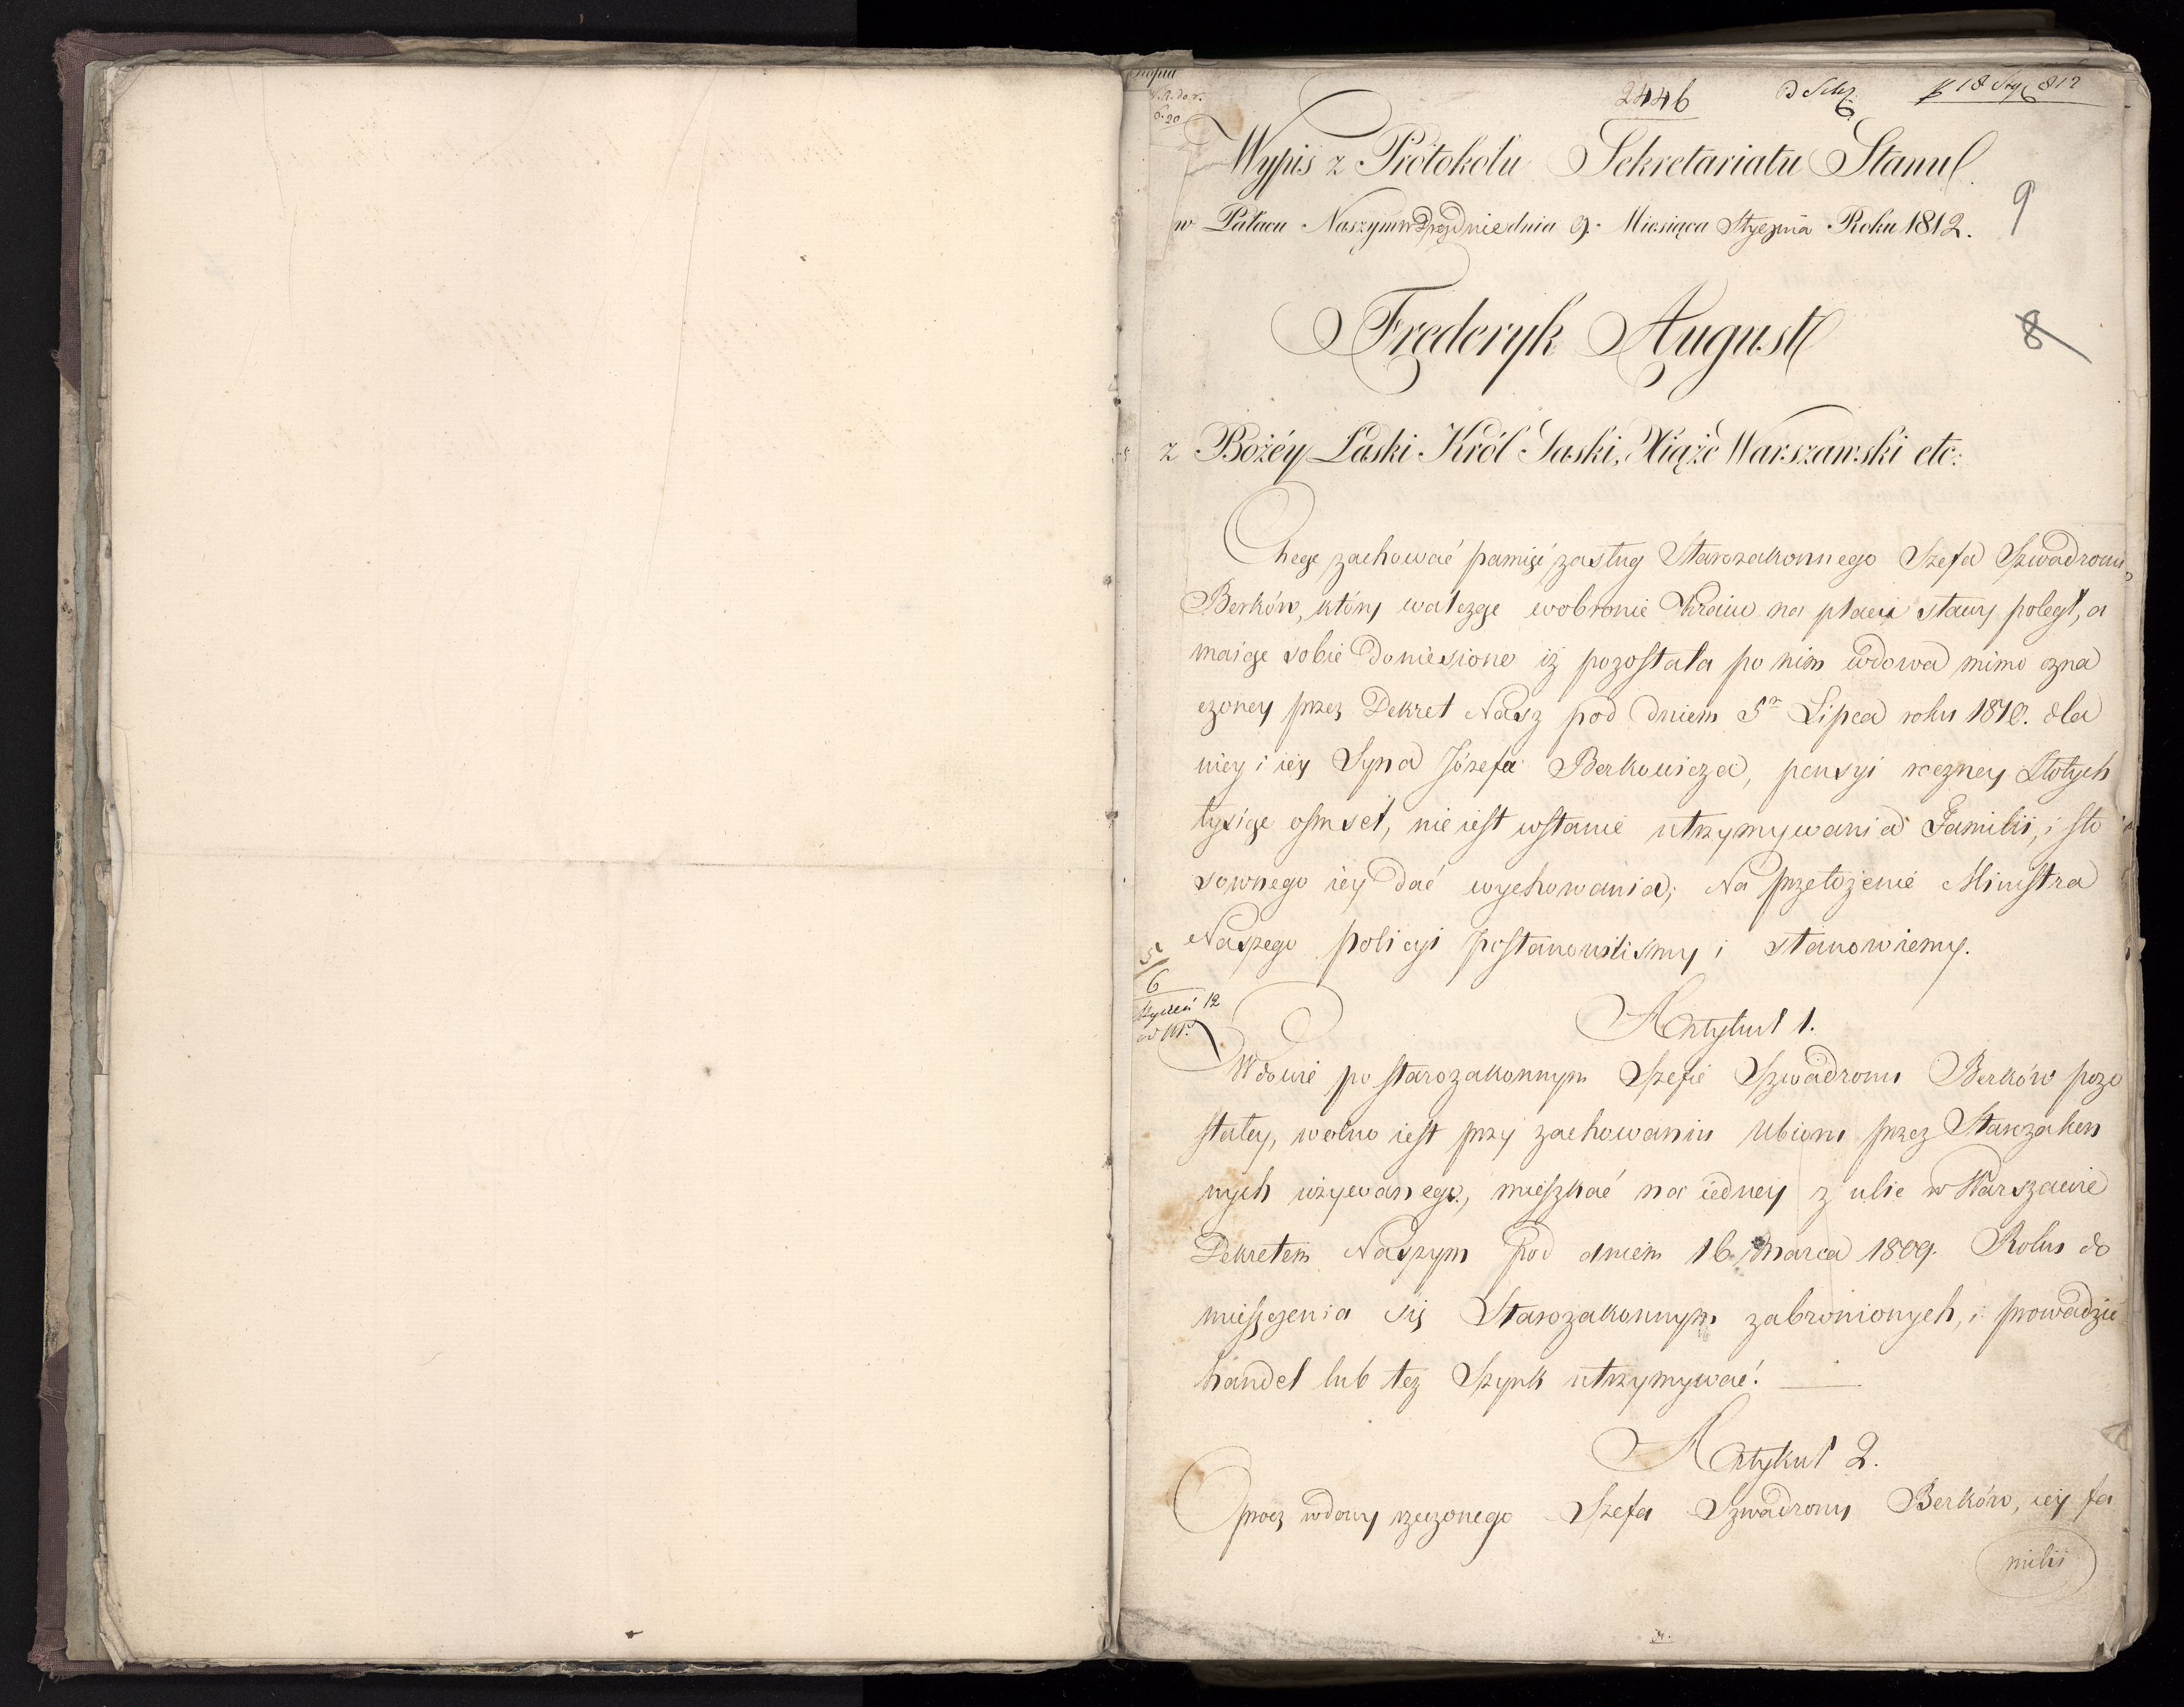 Kopia
2446
p 18 Sty 812
Wypis z Protokołu Sekretariatu Stanu.
9
w Pałacu Naszym w Dreźdnie dnia 9. Miesiąca Stycznia Roku 1812.
Frederyk August
8
z Bożéy Łaski Król Saski, Xiąże Warszawski etc:
Chcąc zachować pamięć zasług Starozakonnego Szefa Szwadronu
Berków, który walcząc w obronie Kraiu na placu sławy poległ, a
maiąc sobie doniesione iż pozostała po nim wdowa mimo ozna
czoney przez Dekret Nasz pod dniem 5º Lipca roku 1810. dla
niey i iey Syna Józefa Berkowicza, pensyi roczney Złotych
tysiąc osmset, nie iest wstanie utrzymywania Familii, i sto
sownego iey dać wychowania; Na przełożenie Ministra
Naszego policyi postanowiliśmy i stanowiemy.
5
6
Styczeń 12
Artykuł 1.
Wdowie po starozakonnym Szefie Szwadronu Berków pozo
stałey, wolno iest przy zachowaniu Ubioru przez Starozakon
nych używanego, mieszkać na iedney z ulic w Warszawie
Dekretem Naszym pod dniem 16. Marca 1809. Roku do
mieszczenia się Starozakonnym zabronionych, i prowadzić
handel lub też Szynk utrzymywać.
Artykuł 2.
Oprócz wdowy rzeczonego Szefa Szwadronu Berków, iey fa
milii